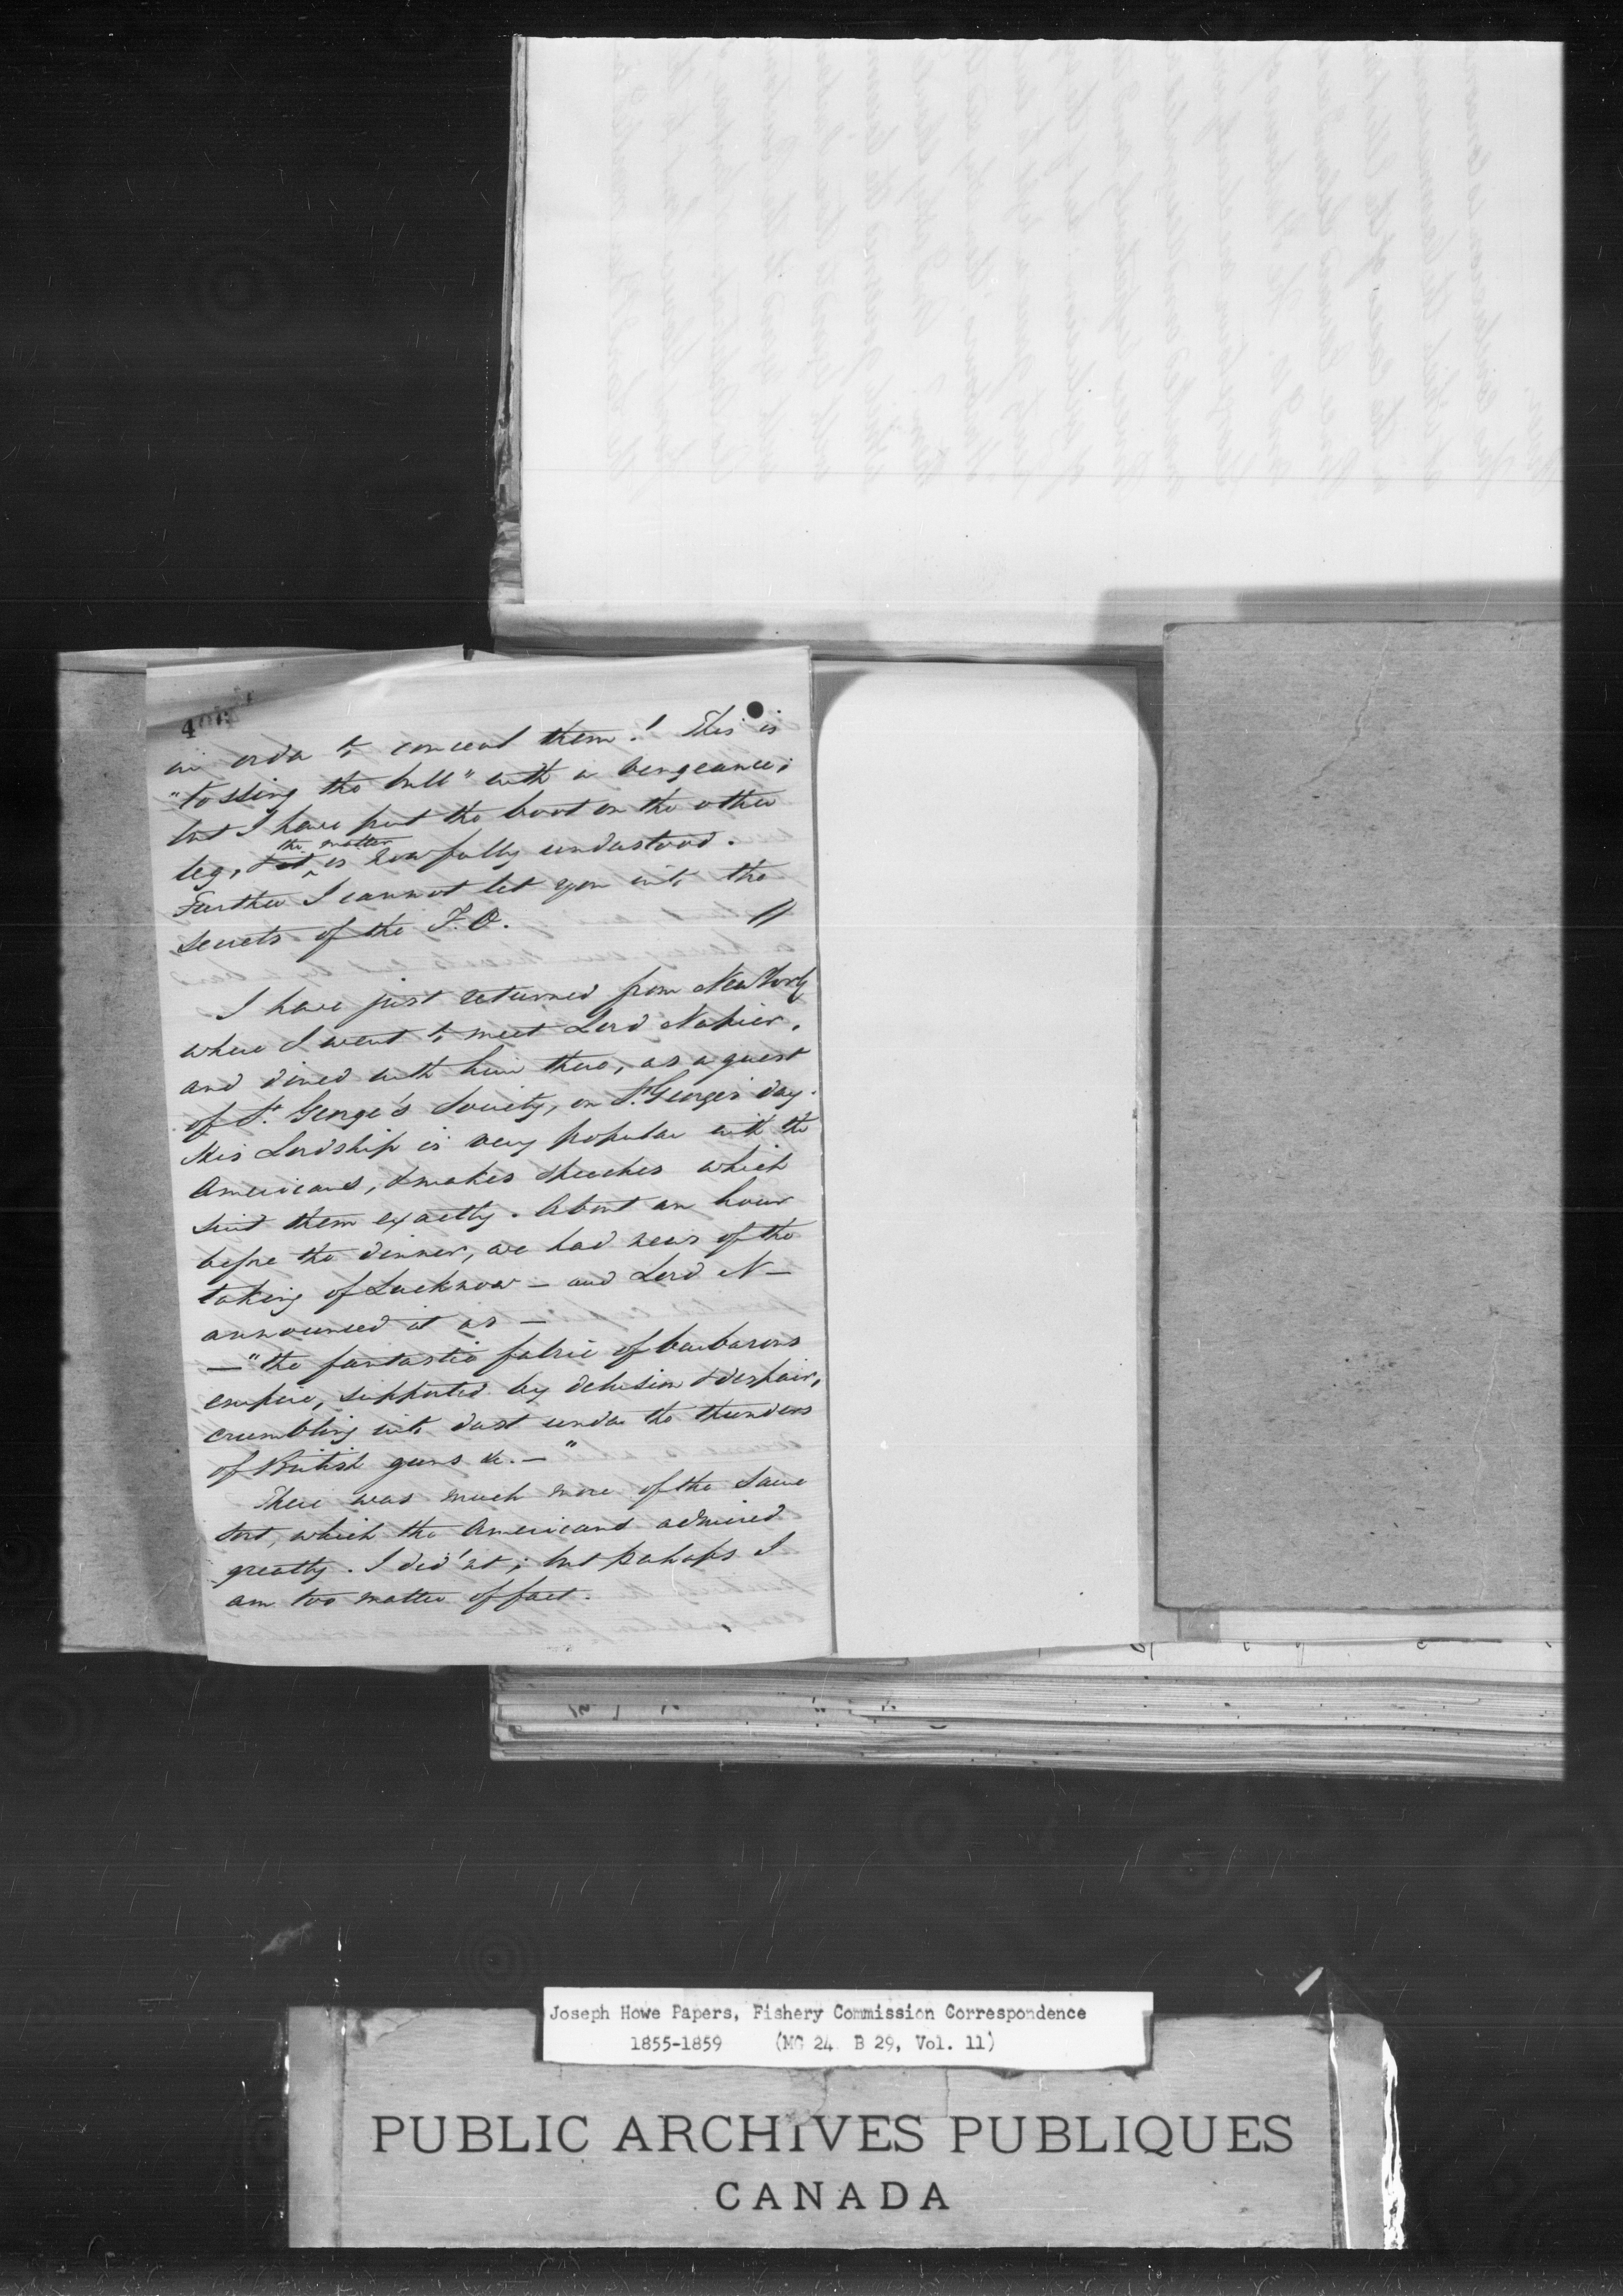 406
in order to conceal them! This is
"tossing the bull" with a vengeance;
but I have put the boot on the other
the matter
leg, & it is now fully understood.
Further I cannot let you into the
secrets of the F.O. //
I have just returned from New York
where I went to meet Lord Napier,
and dined with him there, as a guest
of St. George's Society, on St. George's day.
His Lordship is very popular with the
Americans, & makes speeches which
suit them exactly. About an hour
before the dinner, we had news of the
taking of Lucknow – and Lord N –
announced it as –
– "the fantastic fabric of barbarous
empire, supported by delusion & despair,
crumbling into dust under the thunders
of British guns &c. – "
There was much more of the same
sort, which the Americans admired
greatly. I did'nt; but perhaps I
am too matter of fact.
Joseph Howe Papers, Fishery Commission Correspondence
1855-1859 (MG 24 B 29, Vol. 11)
PUBLIC ARCHIVES PUBLIQUES
CANADA